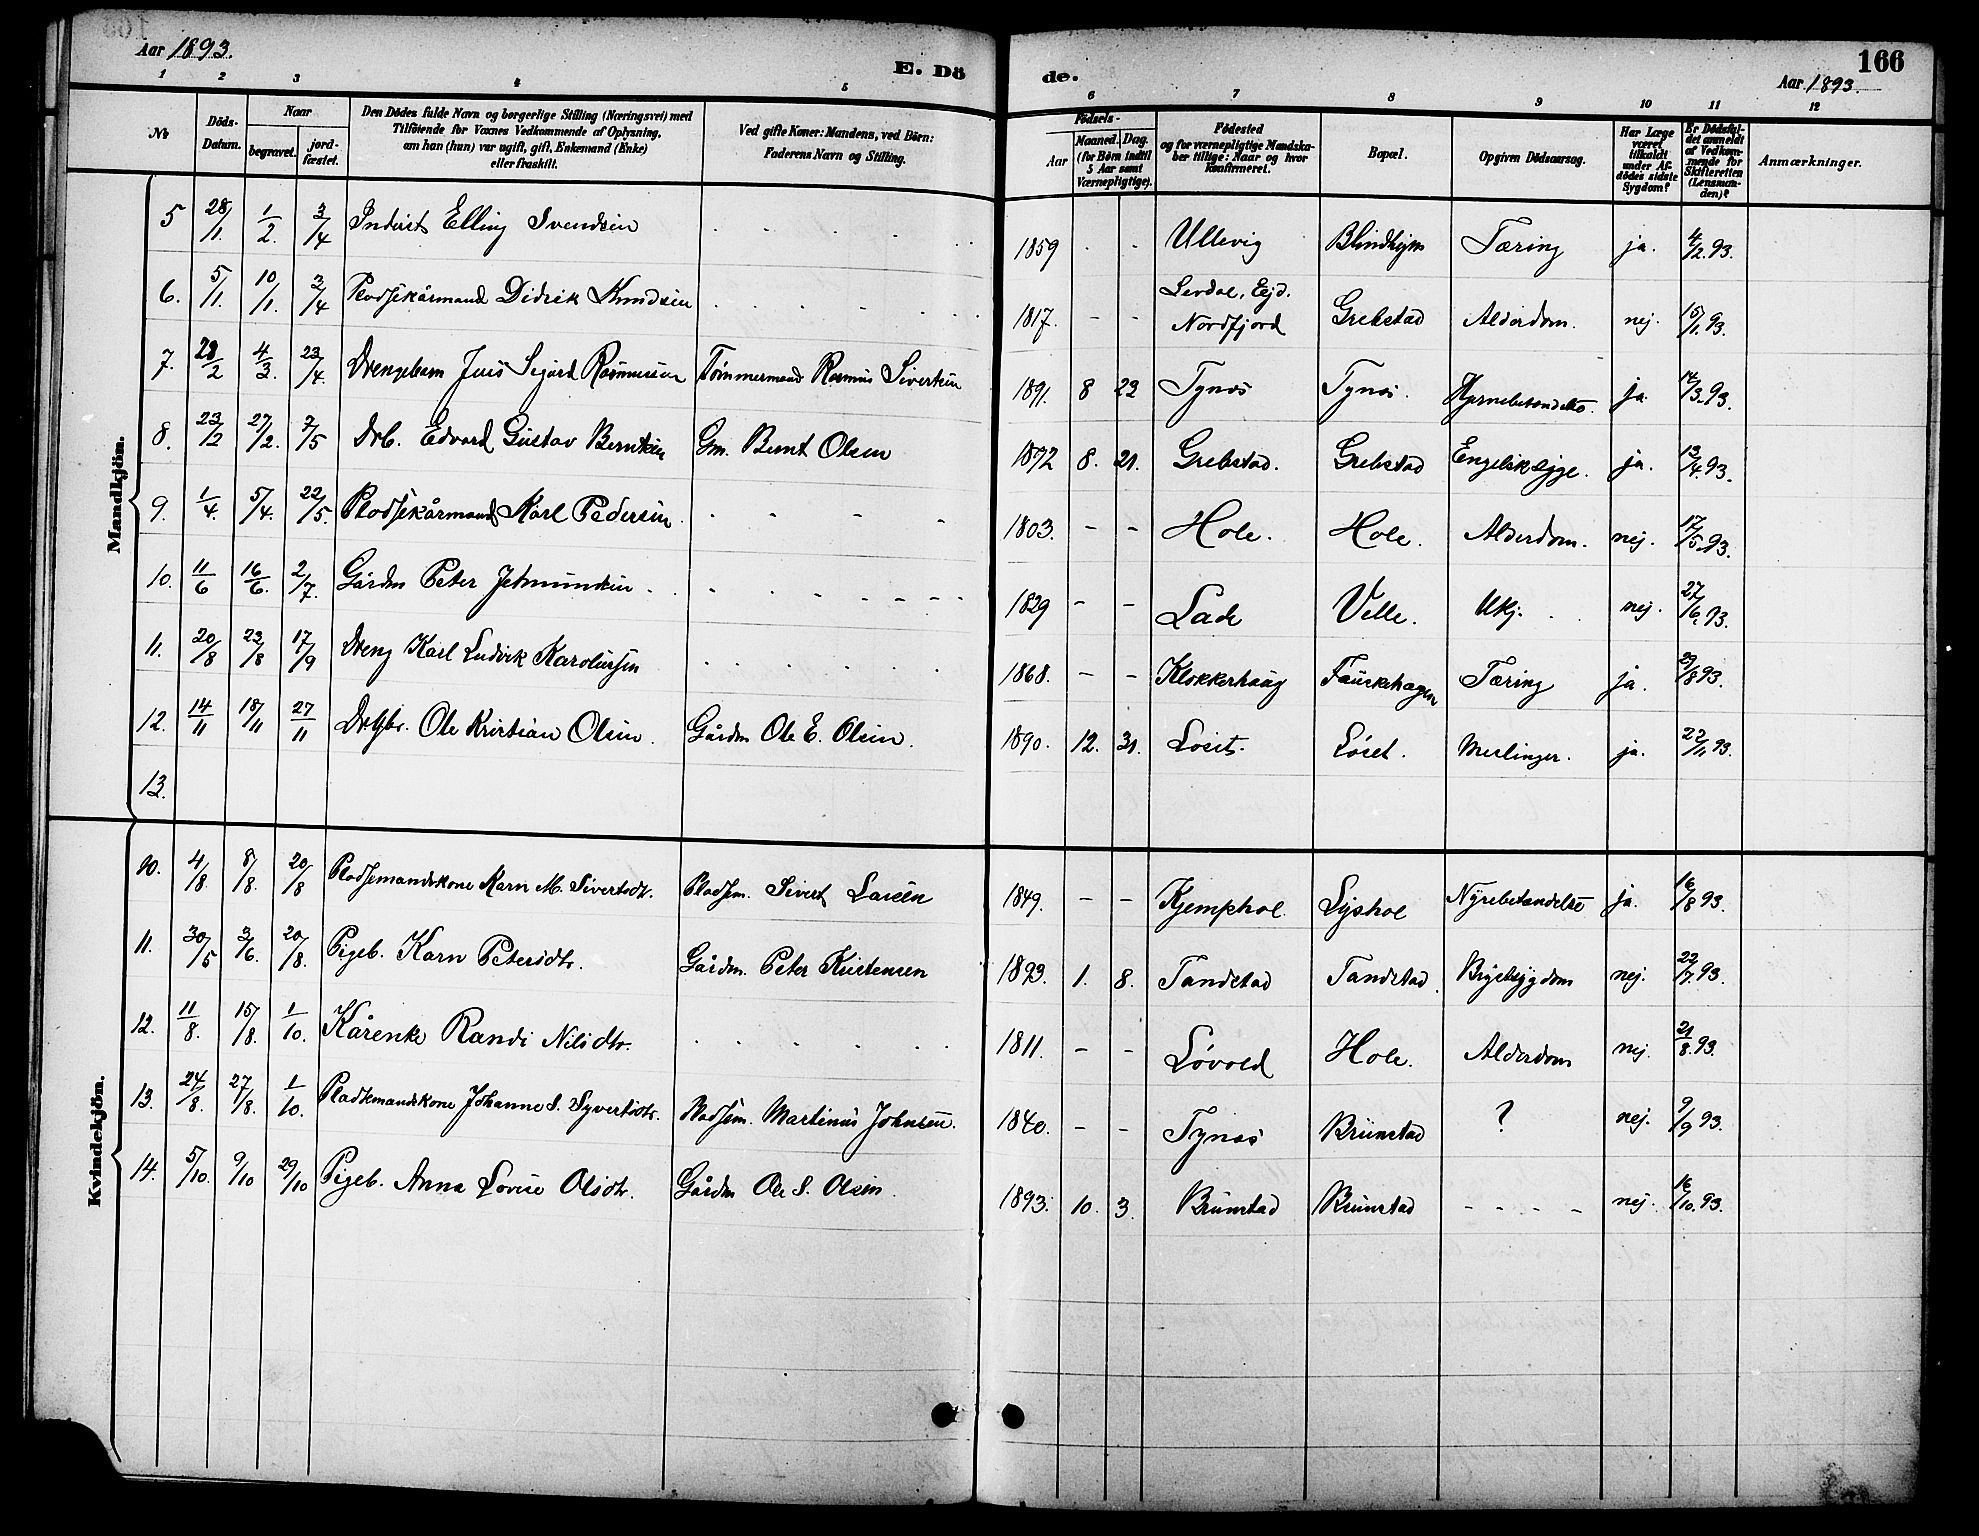 Aar 1893.
E. Dö de.
166
Aar 1893.
1 2 3 4 5 6 7 8 9 10 11 12
No
Döds-Datum.
Naar
begravet.
jord-fæstet.
Den Dödes fulde Navn og borgerlige Stilling (Næringsvei) med
Tilföiende for Voxnes Vedkommende af Oplysning,
om han (hun) var ugift, gift, Enkemand (Enke)
eller fraskilt.
Ved gifte Koner: Mandens, ved Börn:
Faderens Navn og Stilling.
Födsels-
Aar
Maaned. Dag.
(for Börn indtil
5 Aar samt
Værnepligtige).
Födested
og for værnepligtige Mandska-
ber tillige: Naar og hvor
konfirmeret.
Bopæl.
Opgiven Dödsaarsag.
Har Læge
været
tilkaldt
under Af-
dödes sidste
Sygdom?
Er Dödsfal-
det anmeldt
af Vedkom-
mende for
Skifteretten
(Lensman-
den)?
Anmærkninger.
Mandkjön.
5 28/1. 1/2. 3/4 Inderst Elling Svendsen 1859 - - Ullevig Blindhejm Tæring ja. 4/2.93.
6. 5/1. 10/1. 3/4 Pladsekårmand Didrik Knudsen 1817. - - Levdal, Ejd. Nordfjord Grebstad Alderdom. nej. 15/1.93.
7. 28/2 4/3. 23/4. Drengebarn Jens Sigurd Rasmussen Tømmermand Rasmus Sivertsen 1891. 8 22 Tynæs Tynæs. Hjernebetændelse. ja. 14/3.93.
8. 23/2 27/2. 7/5 Drb. Edvard Gustav Berntsen Gm. Bernt Olsen 1872 8. 21. Grebstad. Grebstad Engelsk syge. ja. 13/4.93.
9. 1/4. 5/4. 22/5. Pladsekårmand Karl Pedersen 1803. - - Hole. Hole. Alderdom. nej. 17/5.93.
10. 11/6 16/6. 2/7. Gårdm Peter Jetmundsen 1829 - - Lade Velle. Ukj. nej. 27/6.93.
11. 20/8 23/8 17/9 Dreng Karl Ludvik Karolussen 1868. - - Klokkerhaug Fauskehagen Tæring ja. 29/8 93.
12. 14/11 18/11 27/11 Drgbr. Ole Kristian Olsen. Gårdm Ole E. Olsen. 1890. 12. 31. Løset. Løset. Meslinger. ja. 22/11 93.
13.
Kvindekjön.
10. 4/8. 8/8. 20/8 Pladsemandskone Karn M. Sivertsdtr. Pladsm. Sivert Larsen 1849. - - Kjemphol Lyshol Nyrebetændelse ja. 16/8 93.
11. 30/5 3/6. 20/8. Pigeb. Karn Petersdtr. Gårdm. Peter Kristensen 1893. 1. 8. Tandstad Tandstad. Brystsygdom nej. 22/7.93.
12. 11/8. 15/8. 1/10. Kårenke Randi Nilsdtr. 1811. - - Løvold Hole. Alderdom nej. 21/8.93.
13. 24/8. 27/8. 1/10. Pladsemandskone Johanne S. Syvertsdtr. Pladsem. Martinus Johnsen. 1840. - - Tynæs Brunstad ? nej. 9/9 93.
14. 5/10. 9/10 29/10 Pigeb. Anna Lovise Olsdtr. Gårdm Ole S. Olsen. 1893. 10. 3. Brunstad Brunstad - - - - nej. 16/10.93.